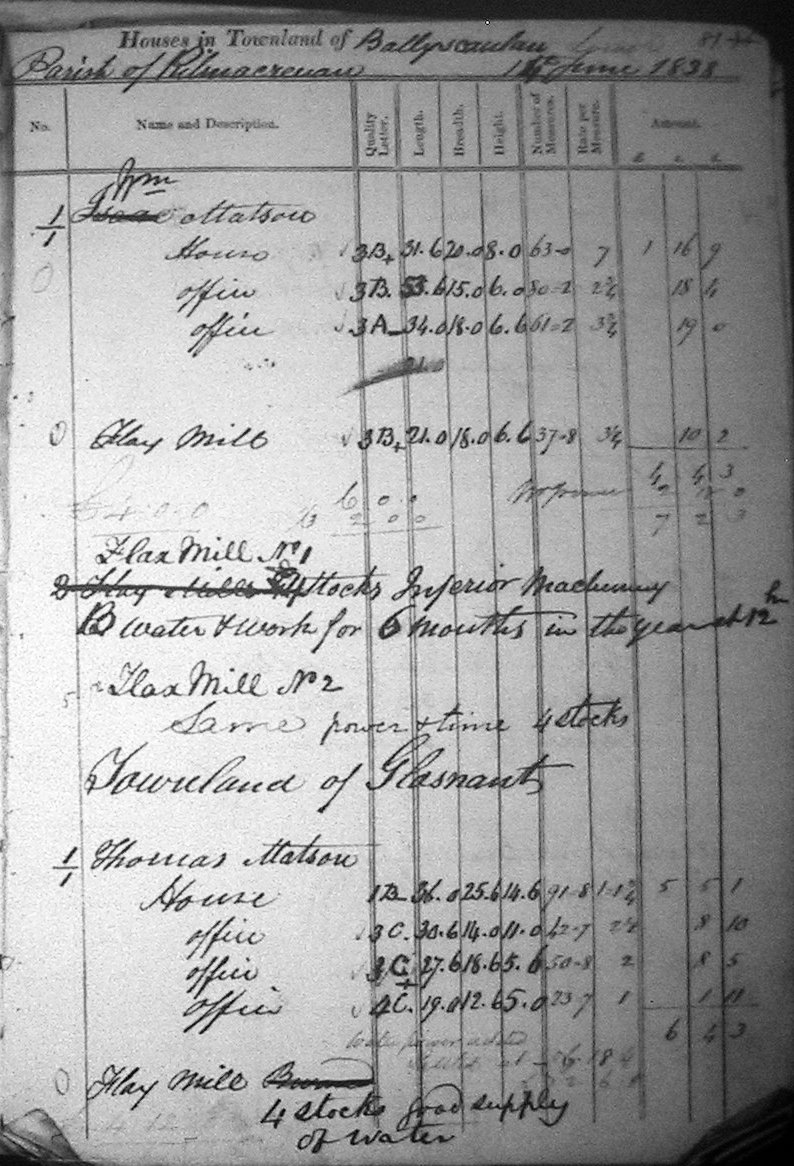 Houses in Townland of Ballyscanlan
Parish of Kilmacrenan 14th June 1838
No. Name and Description. Quality Letter. Length. Breadth. Height. Number of Measures. Rate per Measure. Amount.
£. s. d.
Wm
1/1 Isaac Matson
House 3B+ 31.6 20.0 8.0 63-0 7 1 16 9
0 office 3B. 53.6 15.0 6.0 80-2 2¾ 18 4
office 3A- 34.0 18.0 6.6 61-2 3¾ 19 0
21.0
0 Flax Mill 3B+ 21.0 18.0 6.6 37-8 3¼ 10 2
4 4 3
6 0 0
£4.0.0 2 0 0 7 2 3
Flax Mill No 1
2 Flax Mills 4 stocks Inferior Machinery
B water & work for 6 months in the year at 12 hrs
Flax Mill No 2
Same power & time 4 stocks
Townland of Glasnant
1/1 Thomas Matson
House 1B- 36.0 25.6 14.6 91-8 1-1¾ 5 5 1
office 3C. 30.6 14.0 11.0 42-7 2½ 8 10
office 3C+ 27.6 18.6 5.6 50-8 2 8 5
office 4C. 19.0 12.6 5.0 23-7 1 1 11
6 4 3
Water power added
0 Flax Mill Burned
4 stocks good supply
of water